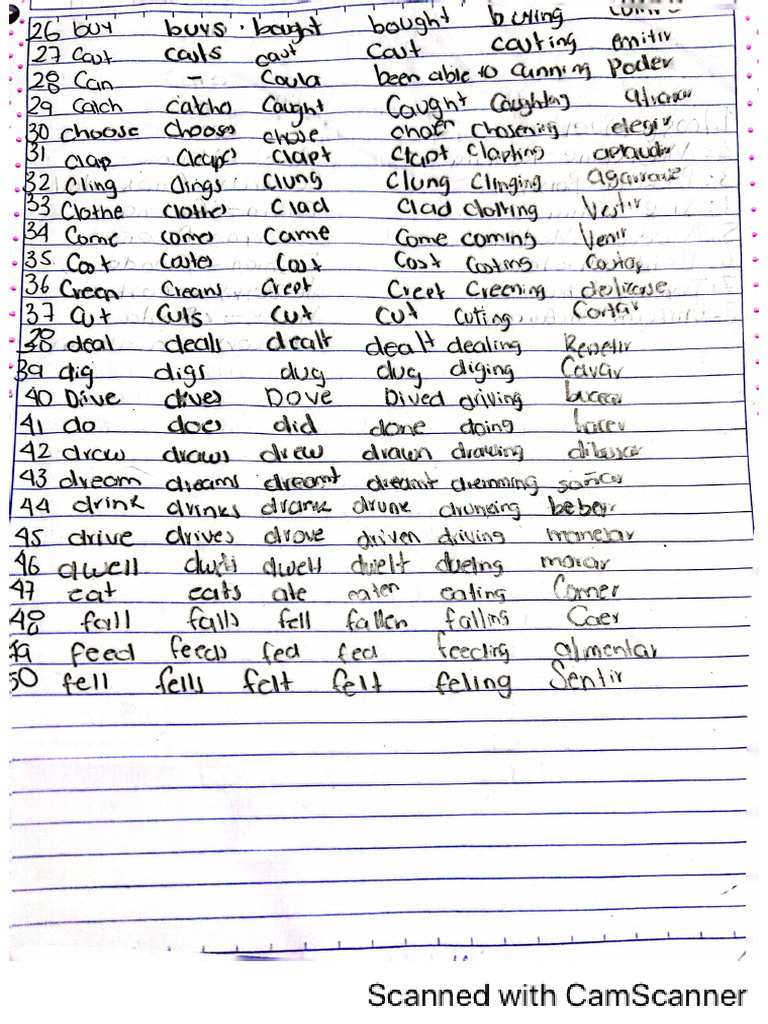 26 buy buys bought bought buying
27 Caut cauts caut Caut cauting emitir
28 Can - Coula been able to Cunning Poder
29 Catch catche Caught Caught Caughting
30 choose Chooses chose chosen Chosening elegir
31 Clap Cleaps clapt Clapt Clapting
32 Cling Clings Clung Clung Clinging agarrarse
33 Clothe clothes Clad Clad clothing Vestir
34 Come comes Came Come coming Venir
35 Cost Costes Cost Cost Costing Costar
36 Creen Creans Creet Creet Creening deslicase
37 Cut Cuts Cut cut cuting Cortar
38 deal deals dealt dealt dealing
39 dig digs dug dug diging Cavar
40 Dive dives Dove Dived driving bucear
41 do does did done doing hacer
42 draw draws drew drawn drawing
43 dream dreams dreamt dreamt dremming soñar
44 drink drinks drank drunk druncing beber
45 drive drives drove driven driving manejar
46 dwell dwells dwelt dwelt dueing morar
47 eat eats ate eaten eating Comer
48 fall falls fell fallen falling Caer
49 feed feeds fed fed feeding alimentar
50 fell fells felt felt feling Sentir
Scanned with CamScanner